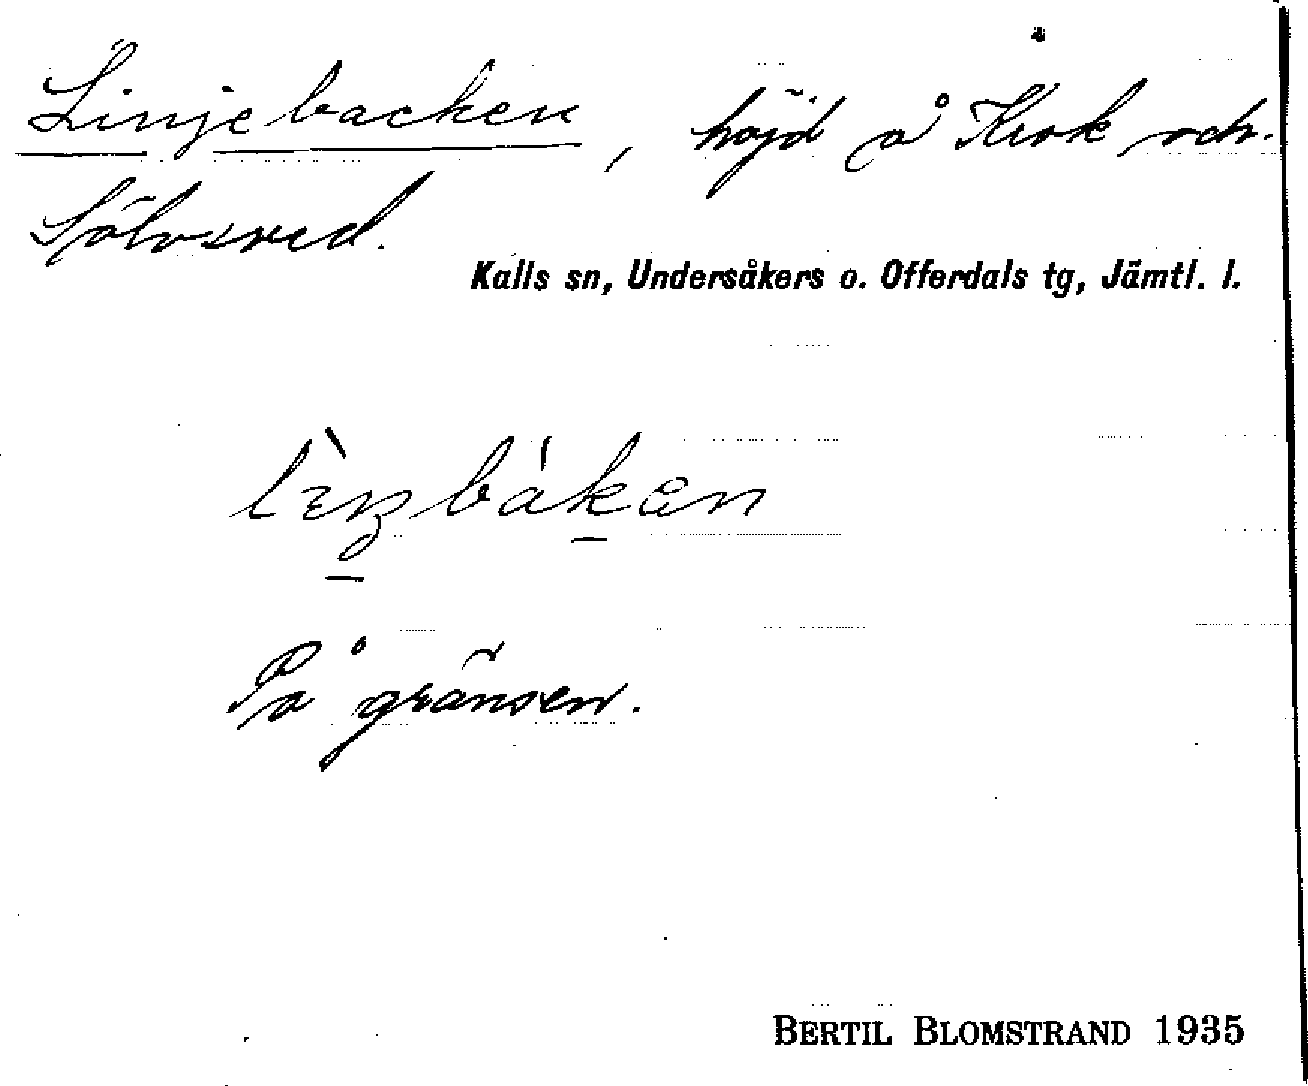 Linjebacken, höjd å Krok och
Sölvsved.
Kalls sn, Undersåkers o. Offerdals tg, Jämtl. l.
På gränsen.
BERTIL BLOMSTRAND 1935